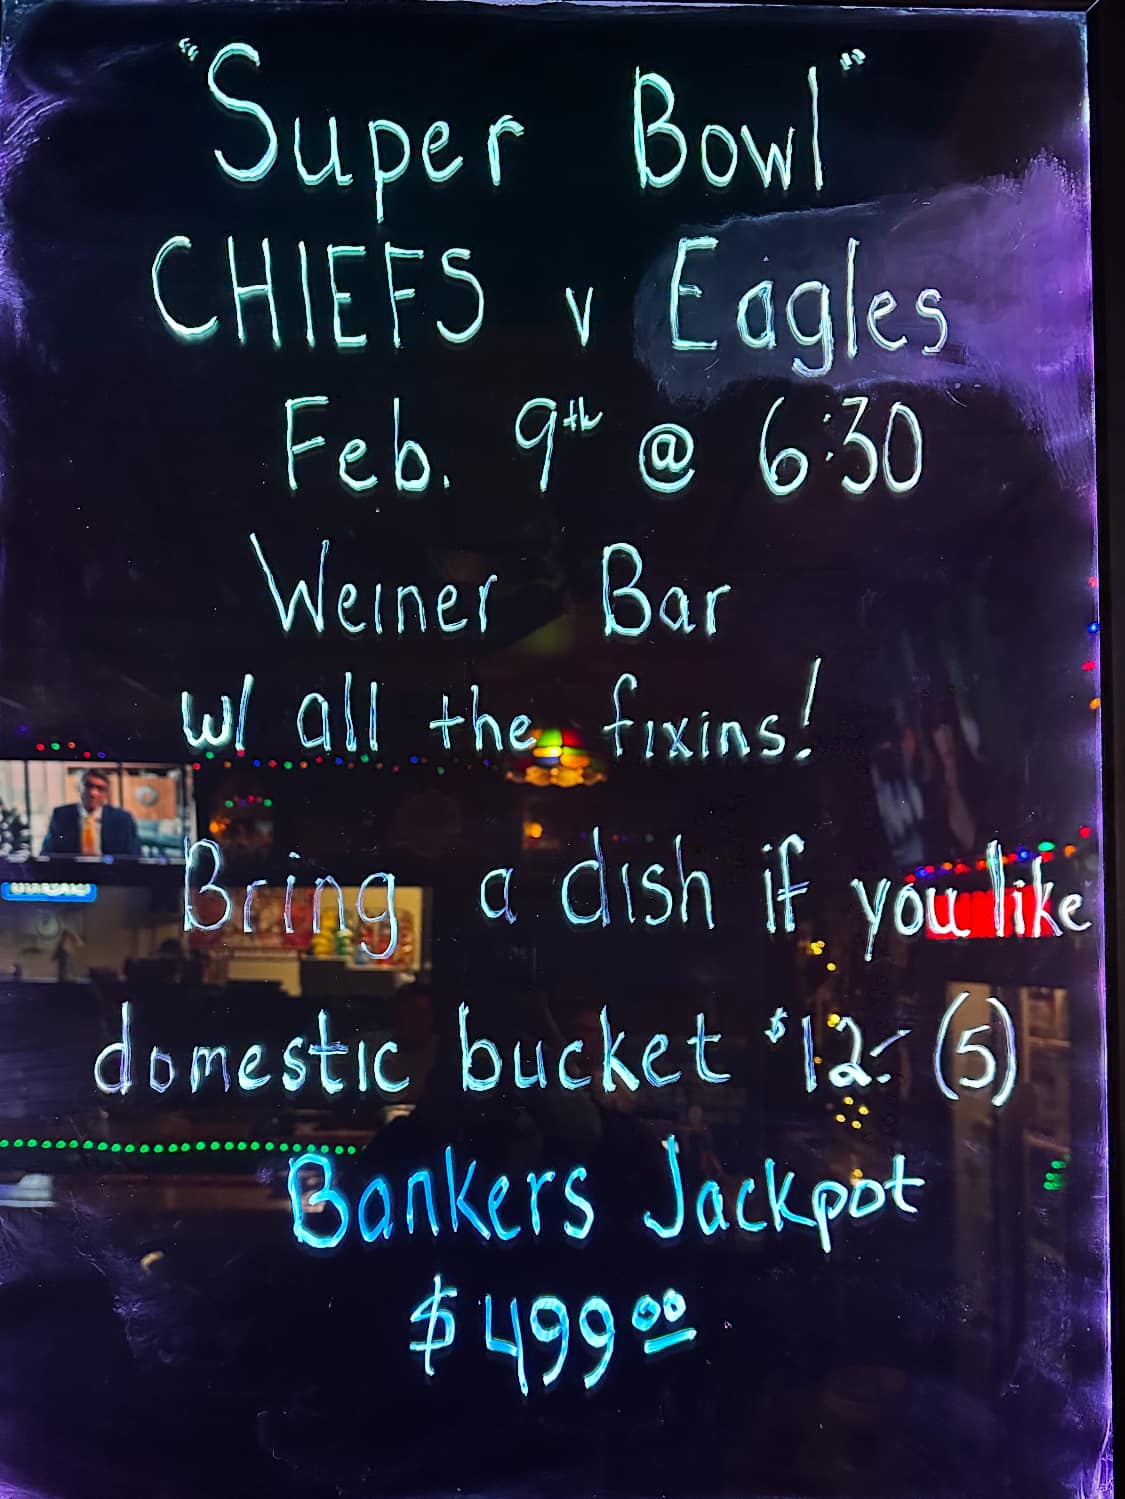 "Super Bowl"
CHIEFS v Eagles
Feb. 9th @ 6:30
Weiner Bar
w/ all the fixins!
Bring a dish if you like
domestic bucket $12.- (5)
Bankers Jackpot
$499.00